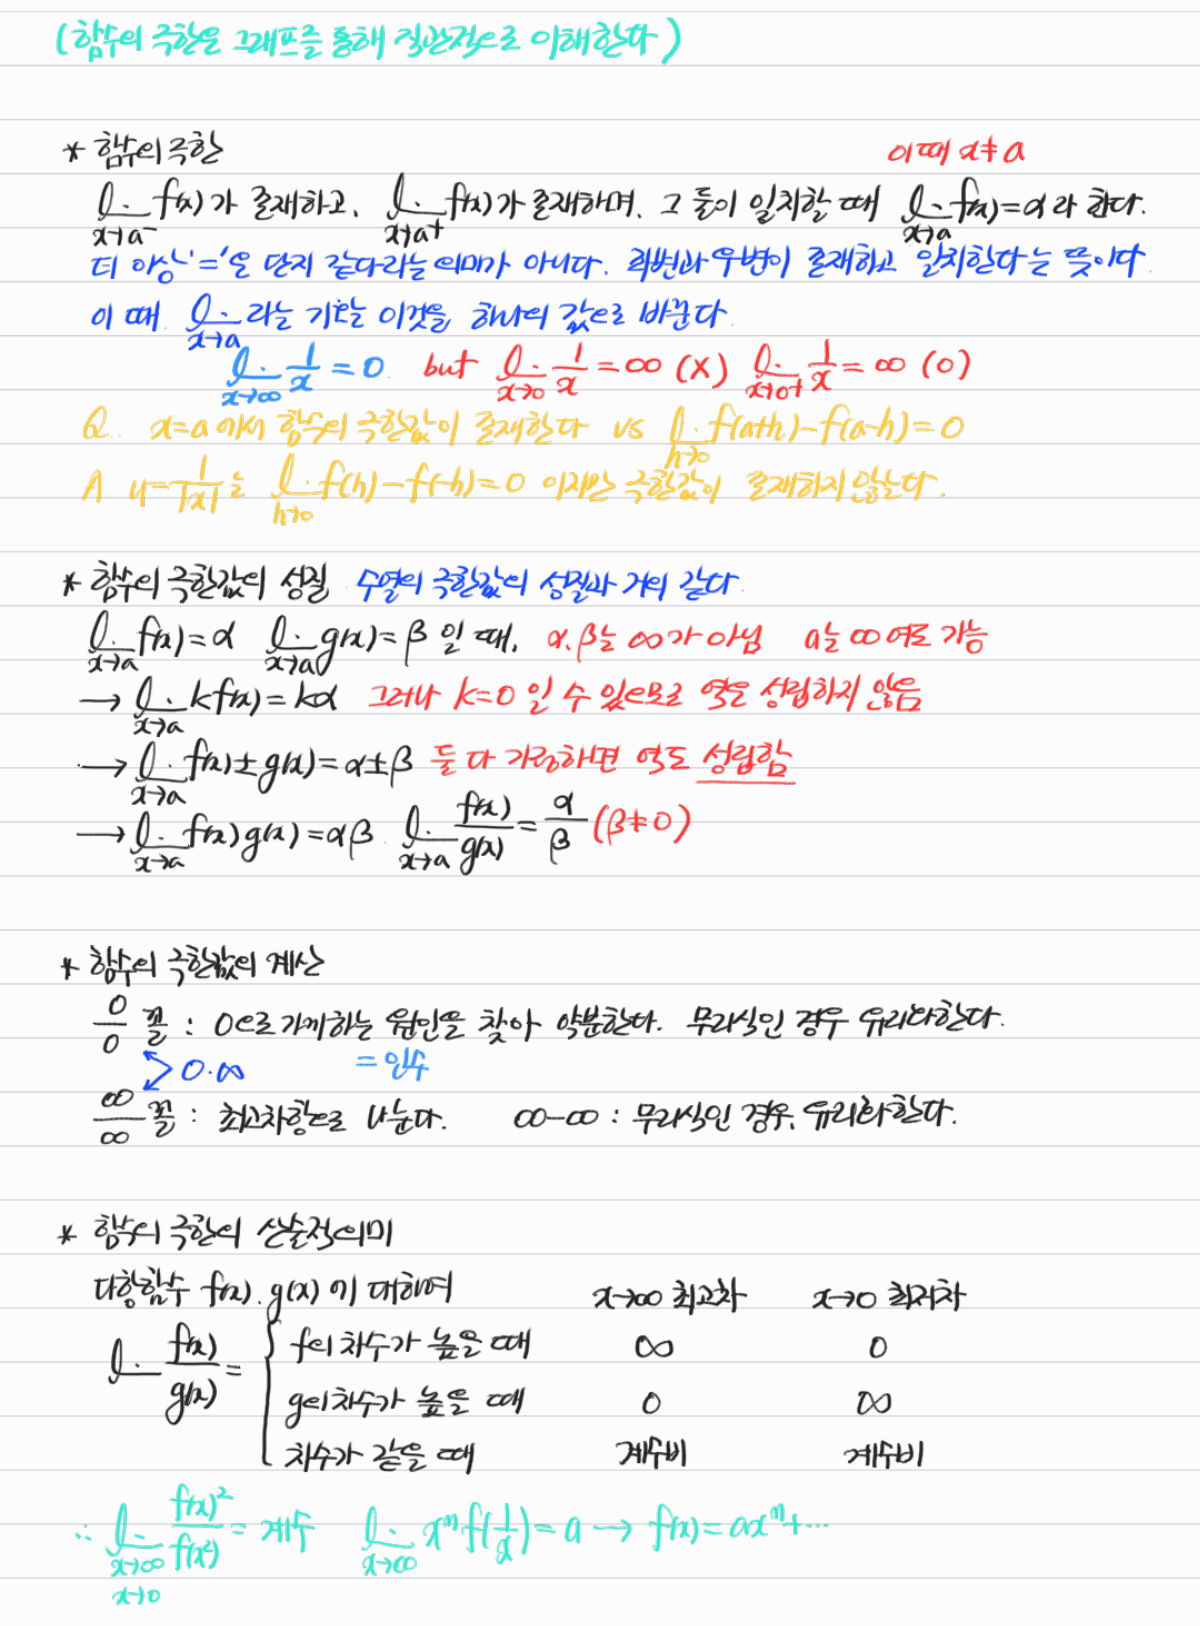 (함수의 극한은 그래프를 통해 직관적으로 이해한다)
* 함수의 극한
이때 x≠a
lim_{x→a-} f(x)가 존재하고, lim_{x→a+} f(x)가 존재하며, 그 둘이 일치할 때 lim_{x→a} f(x)=α라 한다.
더 이상 '='은 단지 같다라는 의미가 아니다. 좌변과 우변이 존재하고 일치한다는 뜻이다.
이 때 lim_{x→a} 라는 기호는 이것을 하나의 값으로 바꾼다.
lim_{x→∞} 1/x = 0. but lim_{x→0} 1/x = ∞ (X) lim_{x→0+} 1/x = ∞ (O)
Q. x=a에서 함수의 극한값이 존재한다 vs lim_{h→0} f(a+h)-f(a-h)=0
A. y=1/|x|는 lim_{h→0} f(h)-f(-h)=0 이지만 극한값이 존재하지 않는다.
* 함수의 극한값의 성질 수열의 극한값의 성질과 거의 같다.
lim_{x→a} f(x)=α lim_{x→a} g(x)=β 일 때, α, β는 ∞가 아님 a는 ∞여도 가능
→ lim_{x→a} kf(x)=kα 그러나 k=0일 수 있으므로 역은 성립하지 않음
→ lim_{x→a} f(x)±g(x)=α±β 둘 다 가능하면 역도 성립함
→ lim_{x→a} f(x)g(x)=αβ. lim_{x→a} f(x)/g(x) = α/β (β≠0)
* 함수의 극한값의 계산
0/0 꼴 : 0으로 가까이 하는 원인을 찾아 약분한다. 무리식인 경우 유리화한다.
0·∞ =인수
∞/∞ 꼴 : 최고차항으로 나눈다. ∞-∞ : 무리식인 경우, 유리화한다.
* 함수의 극한의 산술적 의미
다항함수 f(x), g(x)에 대하여 x→∞ 최고차 x→0 최저차
lim f(x)/g(x) = { f의 차수가 높을 때 ∞ 0
g의 차수가 높을 때 0 ∞
차수가 같을 때 계수비 계수비
∴ lim_{x→∞, x→0} f(x)²/f(x²) = 계수 lim_{x→∞} xⁿf(1/x)=a → f(x)=axⁿ+⋯